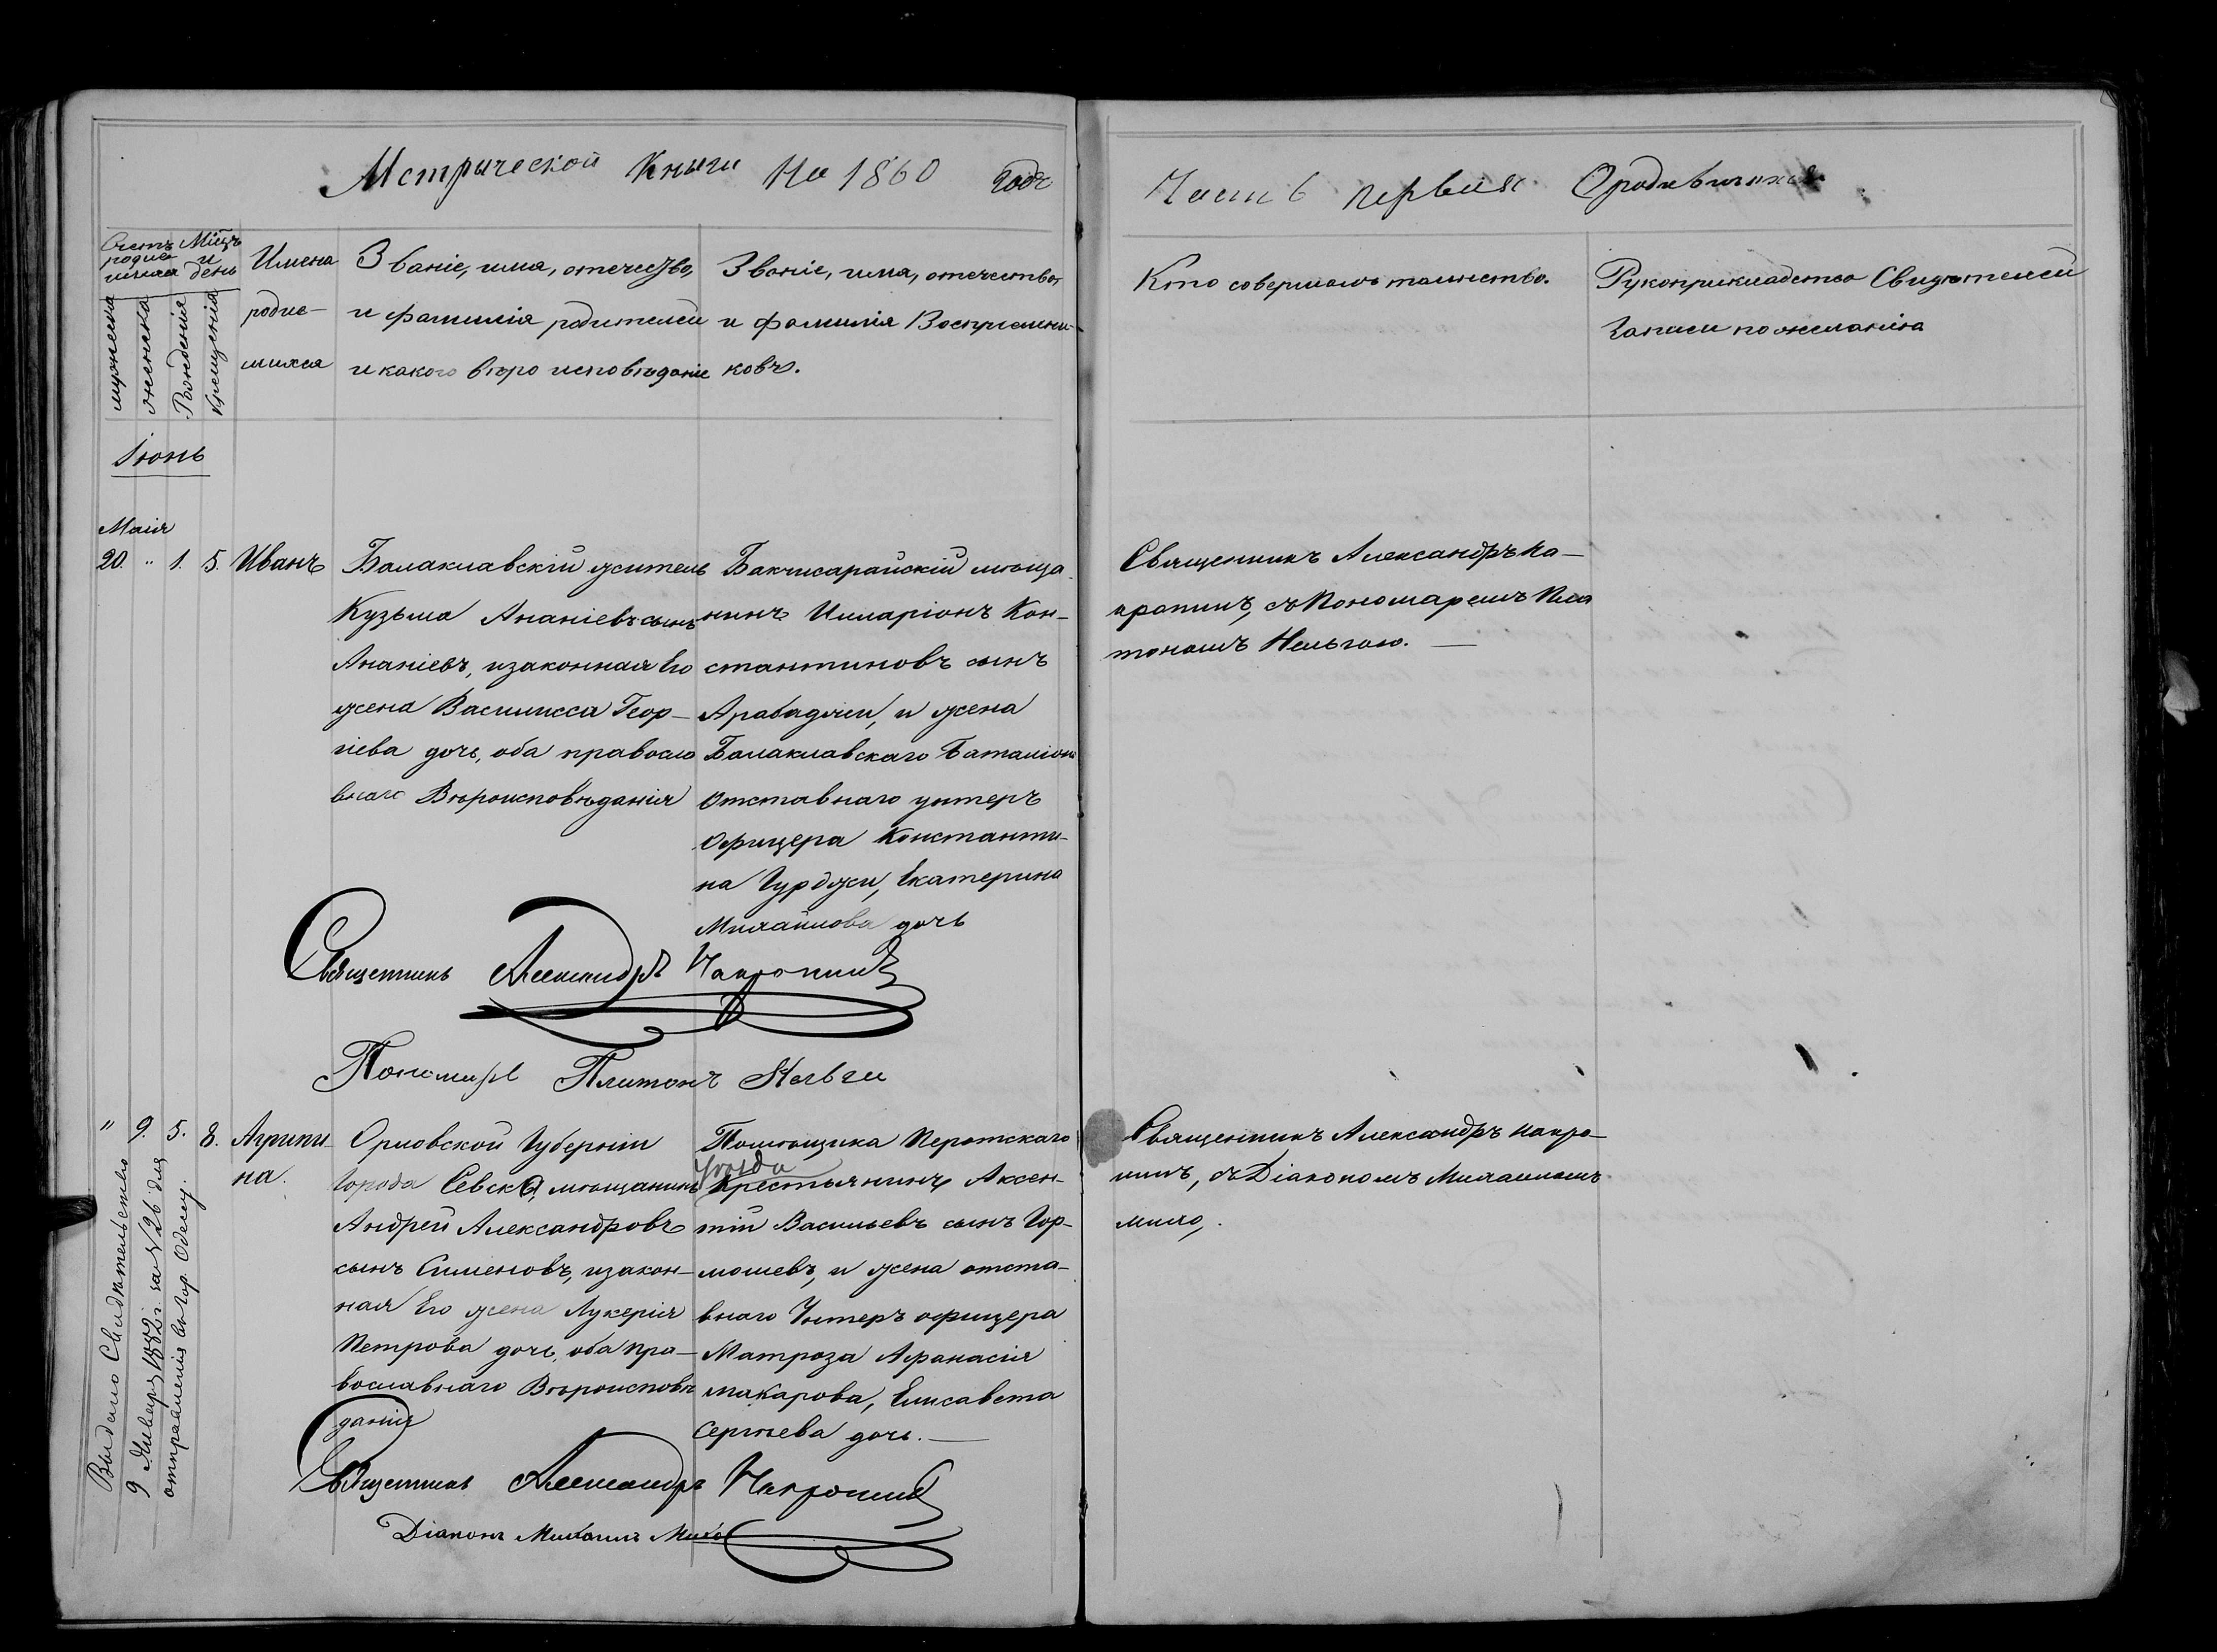 Метрической Книги На 1860 годъ
Часть первая О родившихся
Счетъ родив шихся
Мѣцъ и день
мужеска
женска
Рожденія
Крещенія
Имена
родив-
шихся
Званіе, имя, отечество,
и фамилія родителей
и какого вѣро исповѣданіе
Званіе, имя, отечество,
и фамилія Воспріемни-
ковъ.
Кто совершалъ таинство.
Рукоприкладство Свидѣтелей
записи по желанію
Іюнь
Маія
20. " 1. 5. Иванъ
Балаклавскій житель
Кузьма Ананіевъ сынъ
Ананіевъ, и законная Его
жена Василисса Геор-
гіева дочь, оба правосла
внаго Вѣроисповѣданія
Бакчисарайскій мѣща
нинъ Илларіонъ Кон-
стантиновъ сынъ
Арабаджи, и жена
Балаклавскаго Баталіона
Отставнаго унтеръ
Офицера Константи-
на Гурджи, Екатерина
Михайлова дочь
Священникъ Александръ На-
кропинъ, съ Пономаремъ Пла
тономъ Нельгою.
Священникъ Александръ Накропинъ
Пономарь Платонъ Нельга
" 9. 5. 8. Агрипи-
на.
Орловской Губерніи
Города Севска, мѣщанинъ
Андрей Александровъ
сынъ Сименовъ, и закон-
ная Его жена Лукерія
Петрова дочь, оба Пра-
вославнаго Вѣроисповѣ
данія
Помѣщика Перотскаго
Уѣзда
Крестьянинъ Аксен-
тій Васильевъ сынъ Гор-
мошевъ, и жена отста-
внаго Унтеръ офицера
Матроза Афанасія
Макарова, Елисавета
Сергѣева дочь.
Священникъ Александръ Накро-
пинъ, съ Діакономъ Михаиломъ
Михо,
Священникъ Александръ Накропинъ
Діаконъ Михаилъ Михо
Выдано Свидѣтельство
9 Января 1882 г. за № 26 для
отправленія въ гор. Одессу.